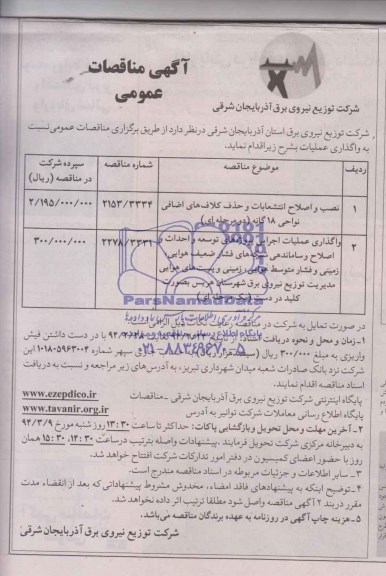 آگهی مناقصات
عمومی
شرکت توزیع نیروی برق آذربایجان شرقی
شرکت توزیع نیروی برق استان آذربایجان شرقی درنظر دارد از طریق برگزاری مناقصات عمومی نسبت
به واگذاری عملیات بشرح زیر اقدام نماید.
ردیف موضوع مناقصه شماره مناقصه سپرده شرکت در مناقصه (ریال)
۱ نصب و اصلاح انشعابات و حذف کلاف‌های اضافی نواحی ۱۸ گانه (دو مرحله ای) ۲۱۵۳/۳۳۳۴ ۲/۱۹۵/۰۰۰/۰۰۰
۲ واگذاری عملیات اجرایی پروژه‌های توسعه و احداث و ۲۲۷۸/۳۳۳۱ ۳۰۰/۰۰۰/۰۰۰
اصلاح و ساماندهی شبکه‌های فشار ضعیف هوایی
زمینی و فشار متوسط هوایی زمینی و پست‌های هوایی
مدیریت توزیع نیروی برق شهرستان هریس بصورت
کلید در دست (یک مرحله ای)
ParsNamadData
۰۲۱-۸۸۳۴۹۶۷۰-۵
در صورت تمایل به شرکت در مناقصه رعایت نکات ذیل الزامی است.
۱-زمان و محل و نحوه دریافت اسناد: از تاریخ
با در دست داشتن فیش
واریزی به مبلغ ۳۰۰/۰۰۰ ریال (سیصد هزار ریال)
سپهر شماره ۰۱۰۱۸۰۵۹۶۳۰۰۴
شرکت نزد بانک صادرات شعبه میدان شهرداری تبریز، به آدرس‌های زیر مراجعه و نسبت به دریافت
اسناد مناقصه اقدام نمایند.
پایگاه اینترنتی شرکت توزیع نیروی برق آذربایجان شرقی -مناقصات www.ezepdico.ir
پایگاه اطلاع رسانی معاملات شرکت توانیر به آدرس www.tavanir.org.ir
۲-آخرین مهلت و محل تحویل و بازگشایی پاکات: حداکثر تا ساعت ۱۳:۳۰ روز شنبه مورخ ۹۴/۳/۹
به دبیرخانه مرکزی شرکت تحویل فرمایند .پیشنهادات واصله بترتیب درساعت ۱۴:۳۰، ۱۵:۳۰ همان
روز با حضور اعضای کمیسیون در دفتر امور تدارکات شرکت افتتاح خواهد شد.
۳- سایر اطلاعات و جزئیات مربوطه در اسناد مناقصه مندرج است.
۴-توضیح اینکه به پیشنهادهای فاقد امضاء، مخدوش مشروط پیشنهاداتی که بعد از انقضاء مدت
مقرر دربند ۲ آگهی مناقصه واصل شود مطلقا ترتیب اثر داده نخواهد شد.
۵-هزینه چاپ آگهی در روزنامه به عهده برندگان مناقصه می‌باشد.
شرکت توزیع نیروی برق آذربایجان شرقی